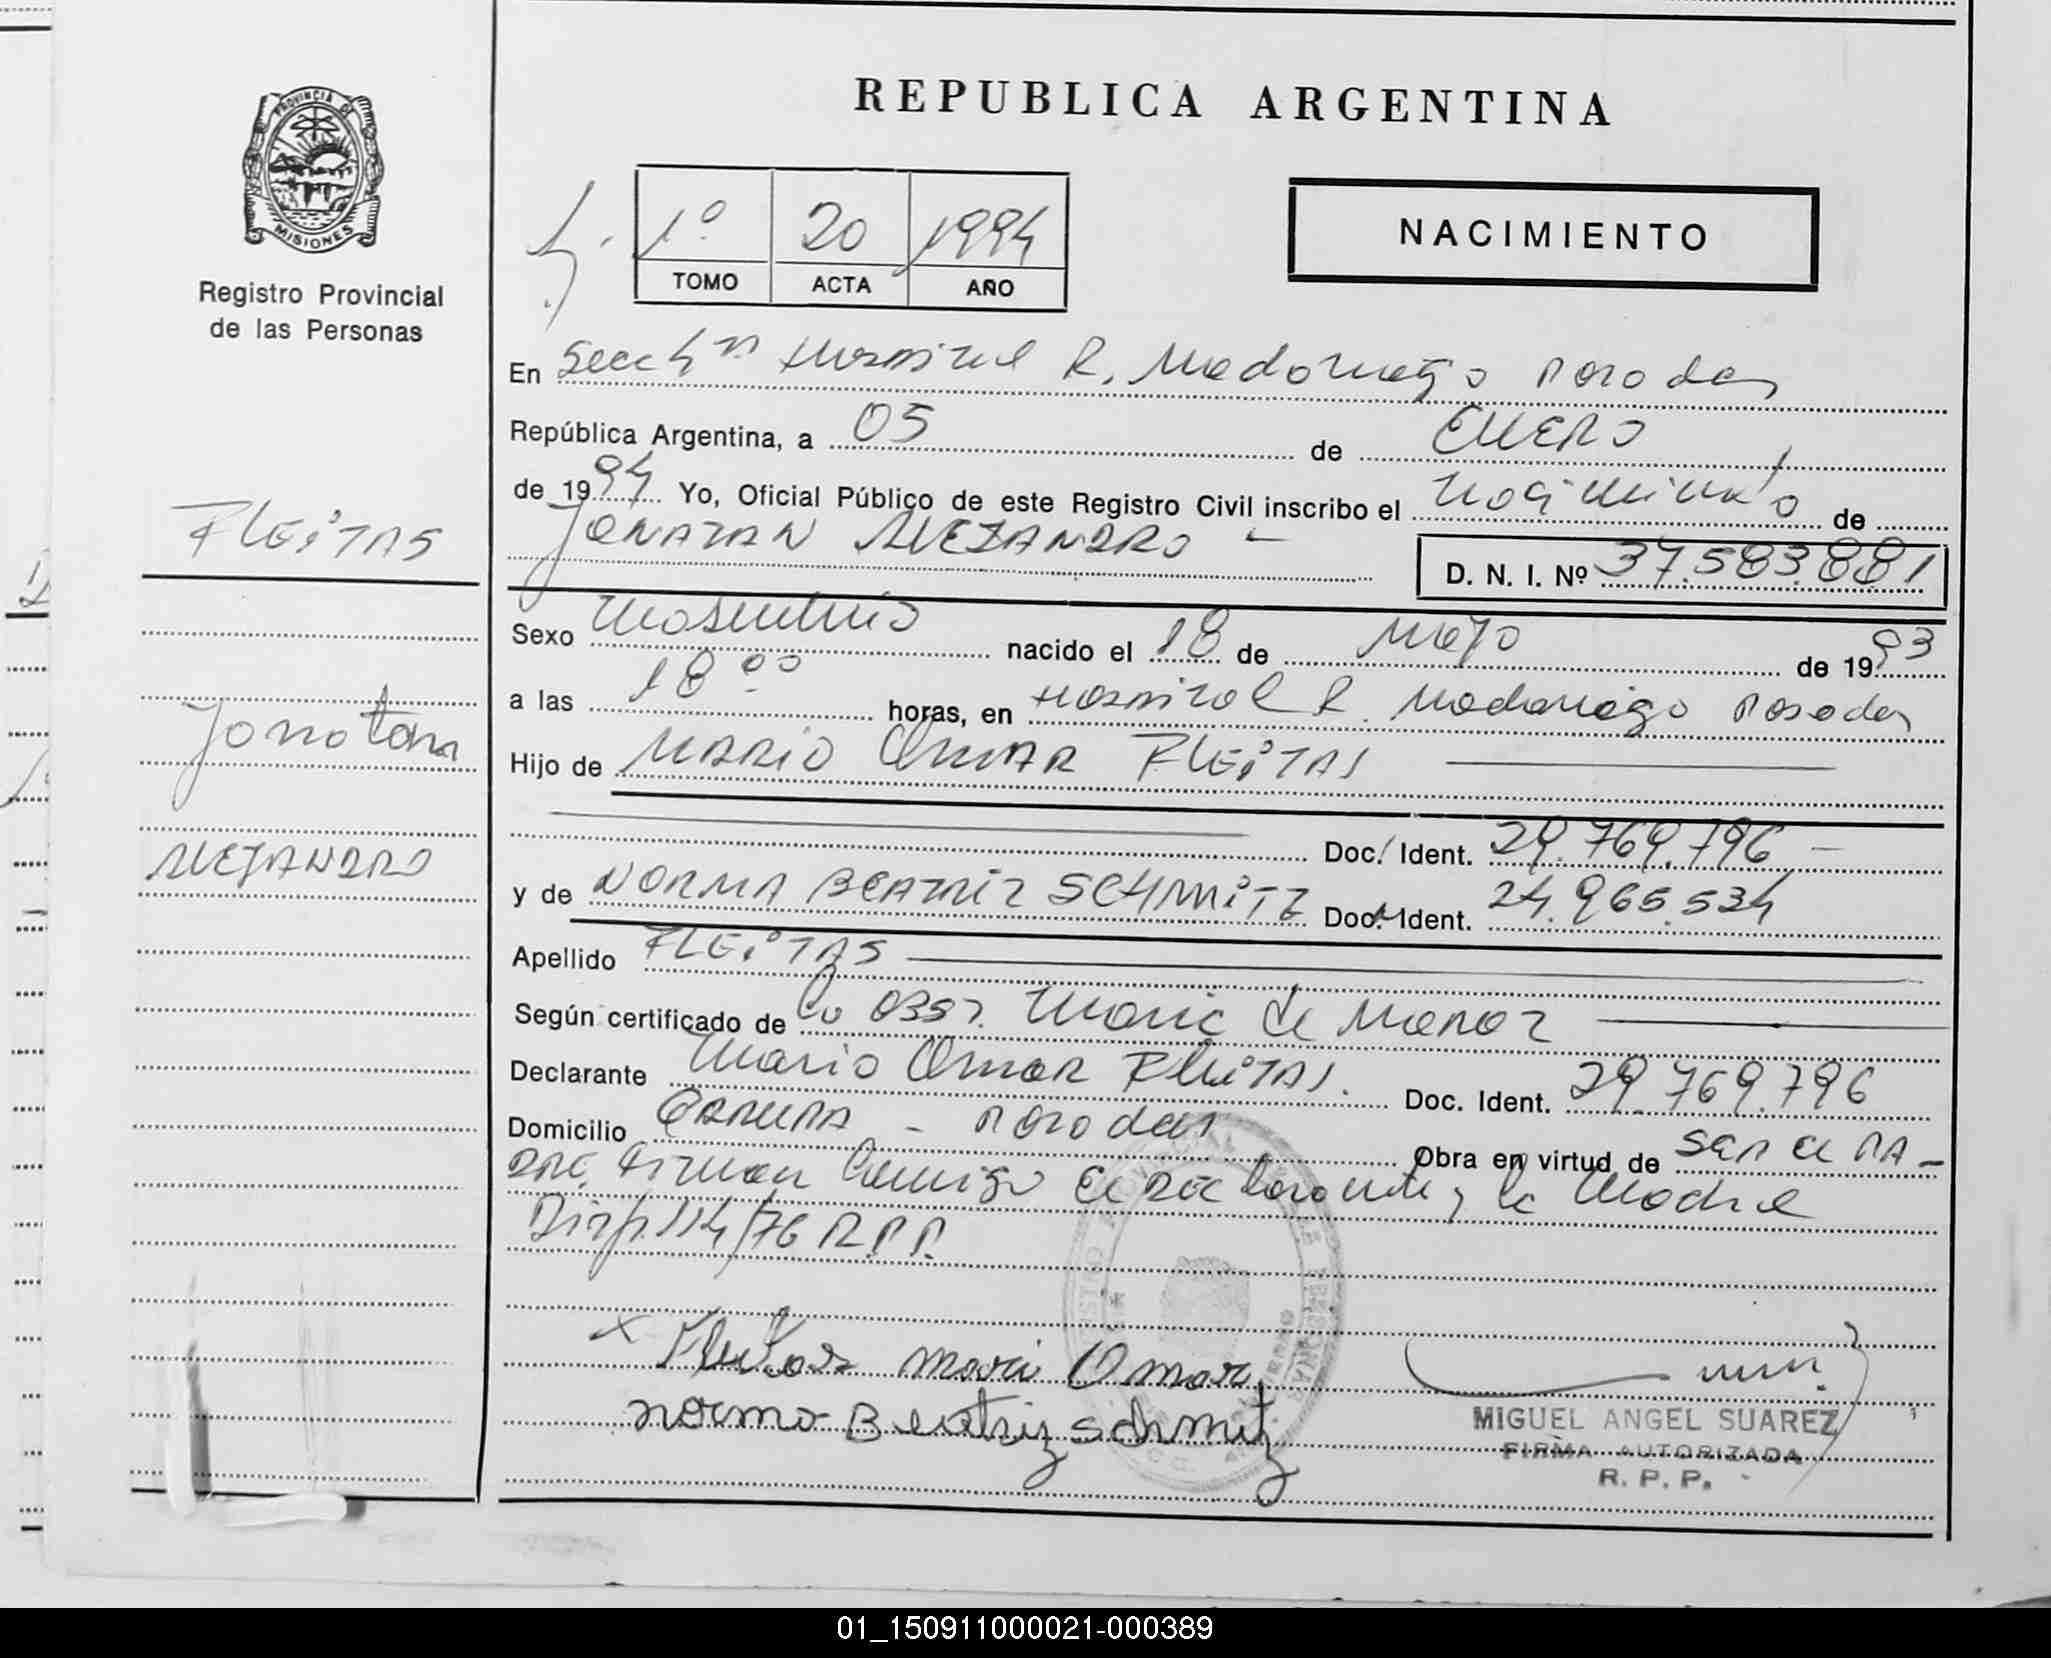 REPUBLICA ARGENTINA
PROVINCIA DE
MISIONES
Registro Provincial
de las Personas
1º 20 1994
TOMO ACTA AÑO
NACIMIENTO
En Secc Hospital R. Madariaga Posadas
República Argentina, a 05 de ENERO
de 1994 Yo, Oficial Público de este Registro Civil inscribo el nacimiento de
JONATAN ALEJANDRO -
D. N. I. Nº 37.583.881
FLEiTAS
Jonatan
ALEJANDRO
Sexo Masculino nacido el 18 de Mayo de 1993
a las 18 00 horas, en Hospital R. Madariaga Posadas
Hijo de MARIO OMAR FLEiTAS
Doc. Ident. 29.769.796 -
y de NORMA BEATRIZ SCHMiTZ Doc. Ident. 24.965.534
Apellido FLEiTAS
Según certificado de la Obst. Maria de Munoz
Declarante Mario Omar Fleitas. Doc. Ident. 29.769.796
Domicilio GARUPA - Posadas Obra en virtud de SER EL PA-
DRE. Firman Conmigo El Declarante y la Madre
Disp. 114/76 R.P.P.
x Fleitas Mario Omar
Norma Beatriz Schmitz
MIGUEL ANGEL SUAREZ
FIRMA AUTORIZADA
R. P. P.
01_150911000021-000389